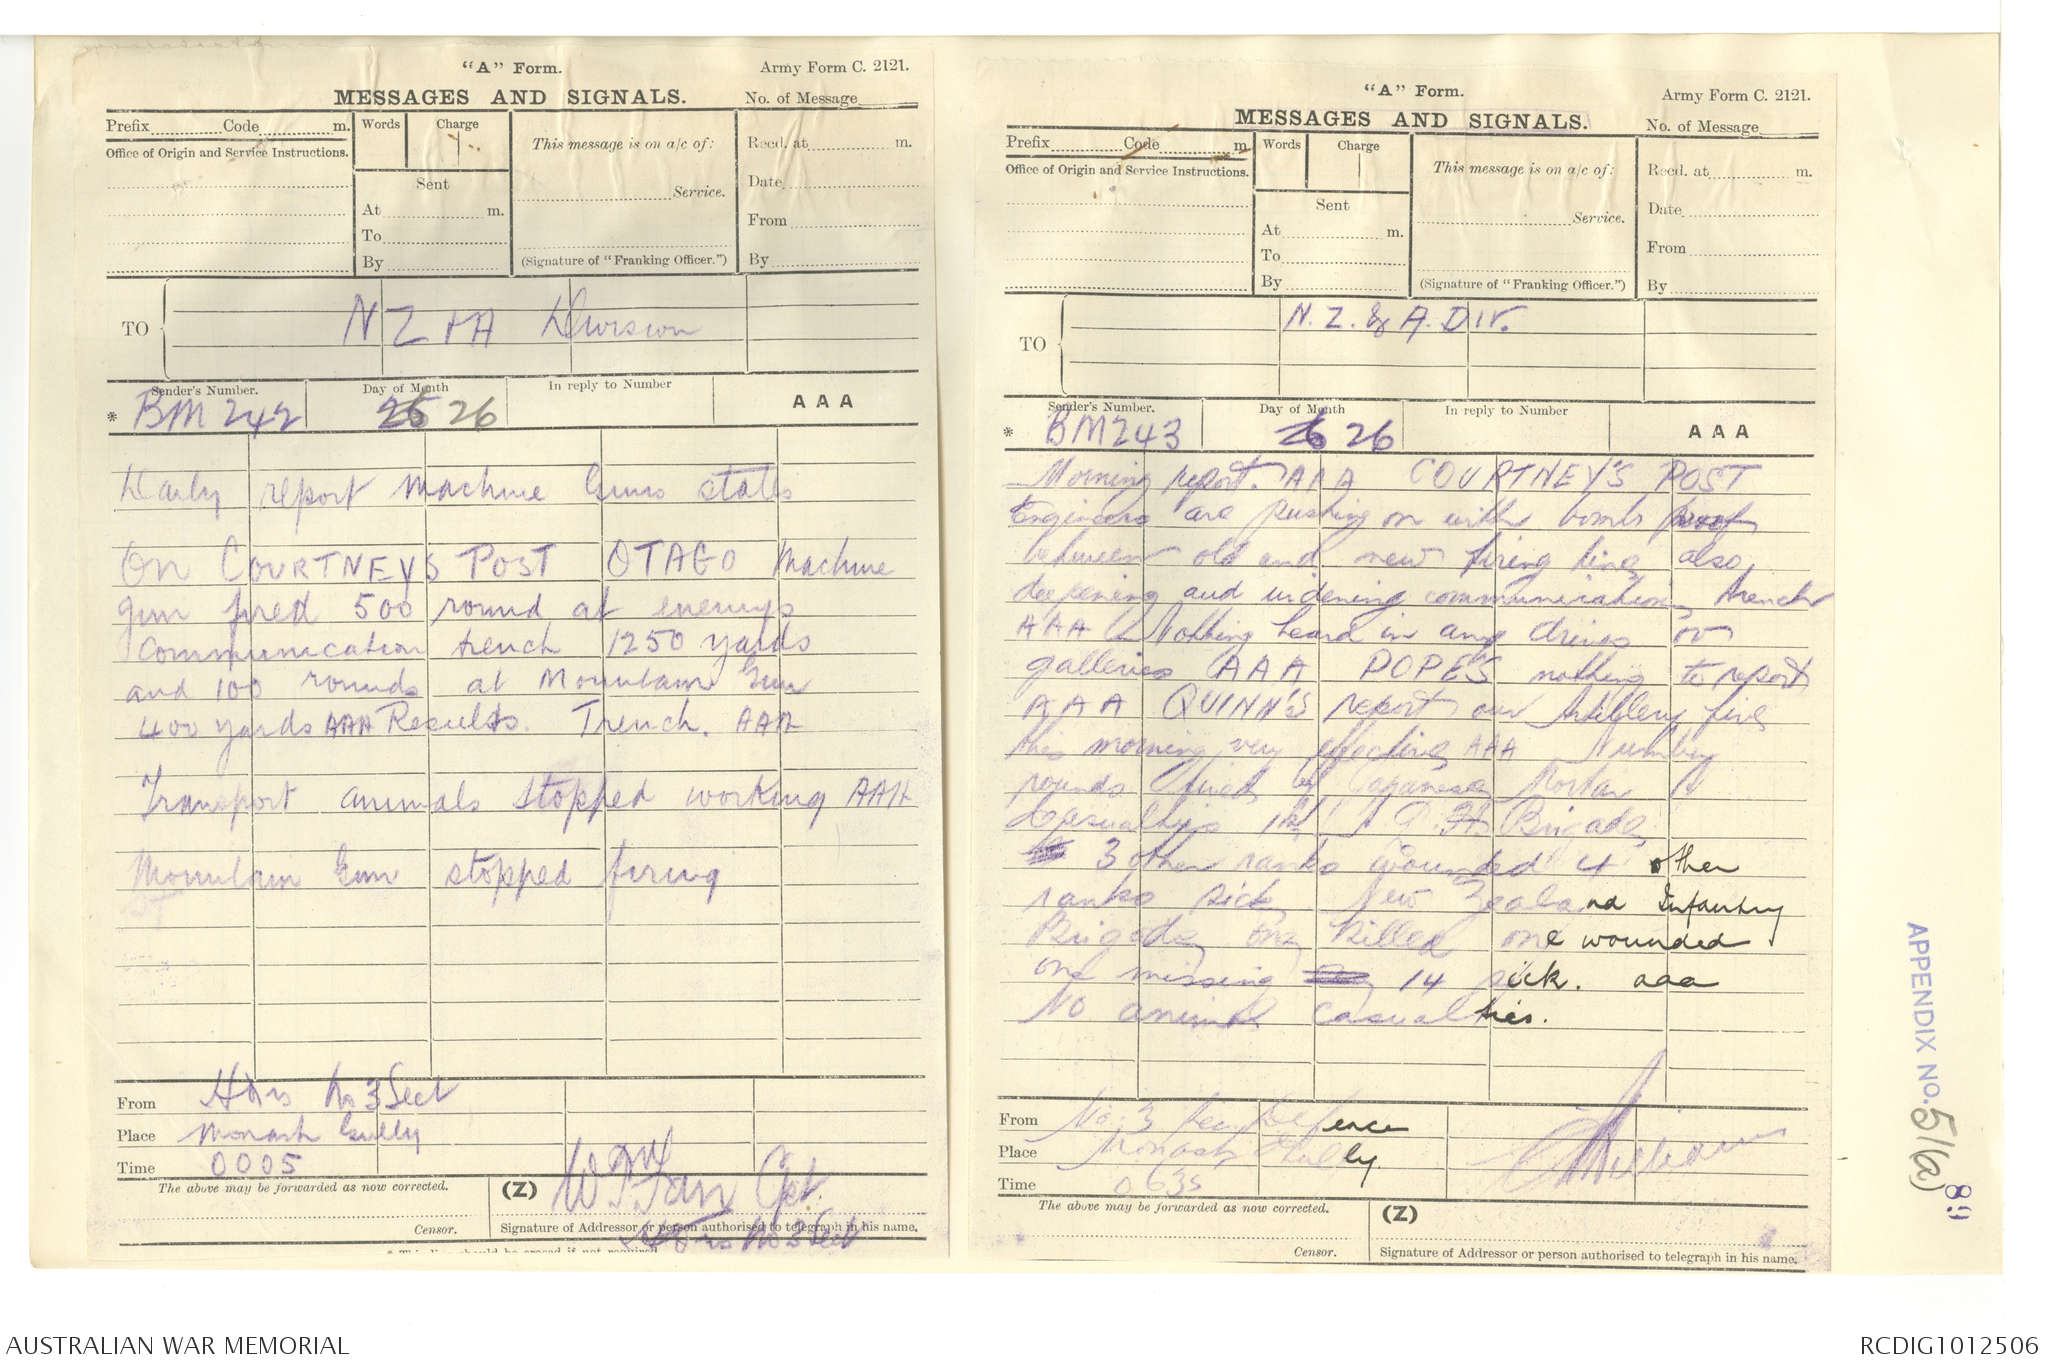 "A" Form.
Army Form C. 2121.
MESSAGES AND SIGNALS.
No. of Message
Prefix Code m.
Words
Charge
This message is on a/c of:
Recd. at m.
Office of Origin and Service Instructions.
Sent
Service.
Date
At m.
From
To
By
(Signature of "Franking Officer.")
By
TO
N Z & A Division
Sender's Number.
Day of Month
In reply to Number
AAA
* BM 242
26
Daily report Machine Guns states
On COURTNEYS POST OTAGO Machine
gun fired 500 round at enemys
Communication trench 1250 yards
and 100 rounds at Mountain Gun
400 yards AAA Results. Trench. AAA
Transport animals stopped working AAA
Mountain Gun stopped firing
From
Hdqrs No 3 Sect
Place
Monash Gully
Time
0005
The above may be forwarded as now corrected.
(Z)
Censor.
Signature of Addressor or person authorised to telegraph in his name.
No 3 Sect
"A" Form.
Army Form C. 2121.
MESSAGES AND SIGNALS.
No. of Message
Prefix Code m.
Words
Charge
This message is on a/c of:
Recd. at m.
Office of Origin and Service Instructions.
Sent
Service.
Date
At m.
From
To
By
(Signature of "Franking Officer.")
By
TO
N. Z. & A. DIV.
Sender's Number.
Day of Month
In reply to Number
AAA
* BM243
26
Morning report. AAA COURTNEY'S POST
Engineers are pushing on with bomb proof
between old and new firing line also
deepening and widening communication trench
AAA Nothing heard in any drives or
galleries AAA POPE'S nothing to report
AAA QUINN'S report our Artillery fire
this morning very effective AAA Number
rounds fired by Japanese Mortar
Casualties Brigade
3 other ranks wounded 4 other
ranks sick New Zealand Infantry
Brigade one killed one wounded
one missing 14 sick. aaa
No animal casualties.
From
No. 3 Sec. Defence
Place
Monash Gully
Time
0635
The above may be forwarded as now corrected.
(Z)
Censor.
Signature of Addressor or person authorised to telegraph in his name.
APPENDIX NO. 51(a)
89
AUSTRALIAN WAR MEMORIAL
RCDIG1012506